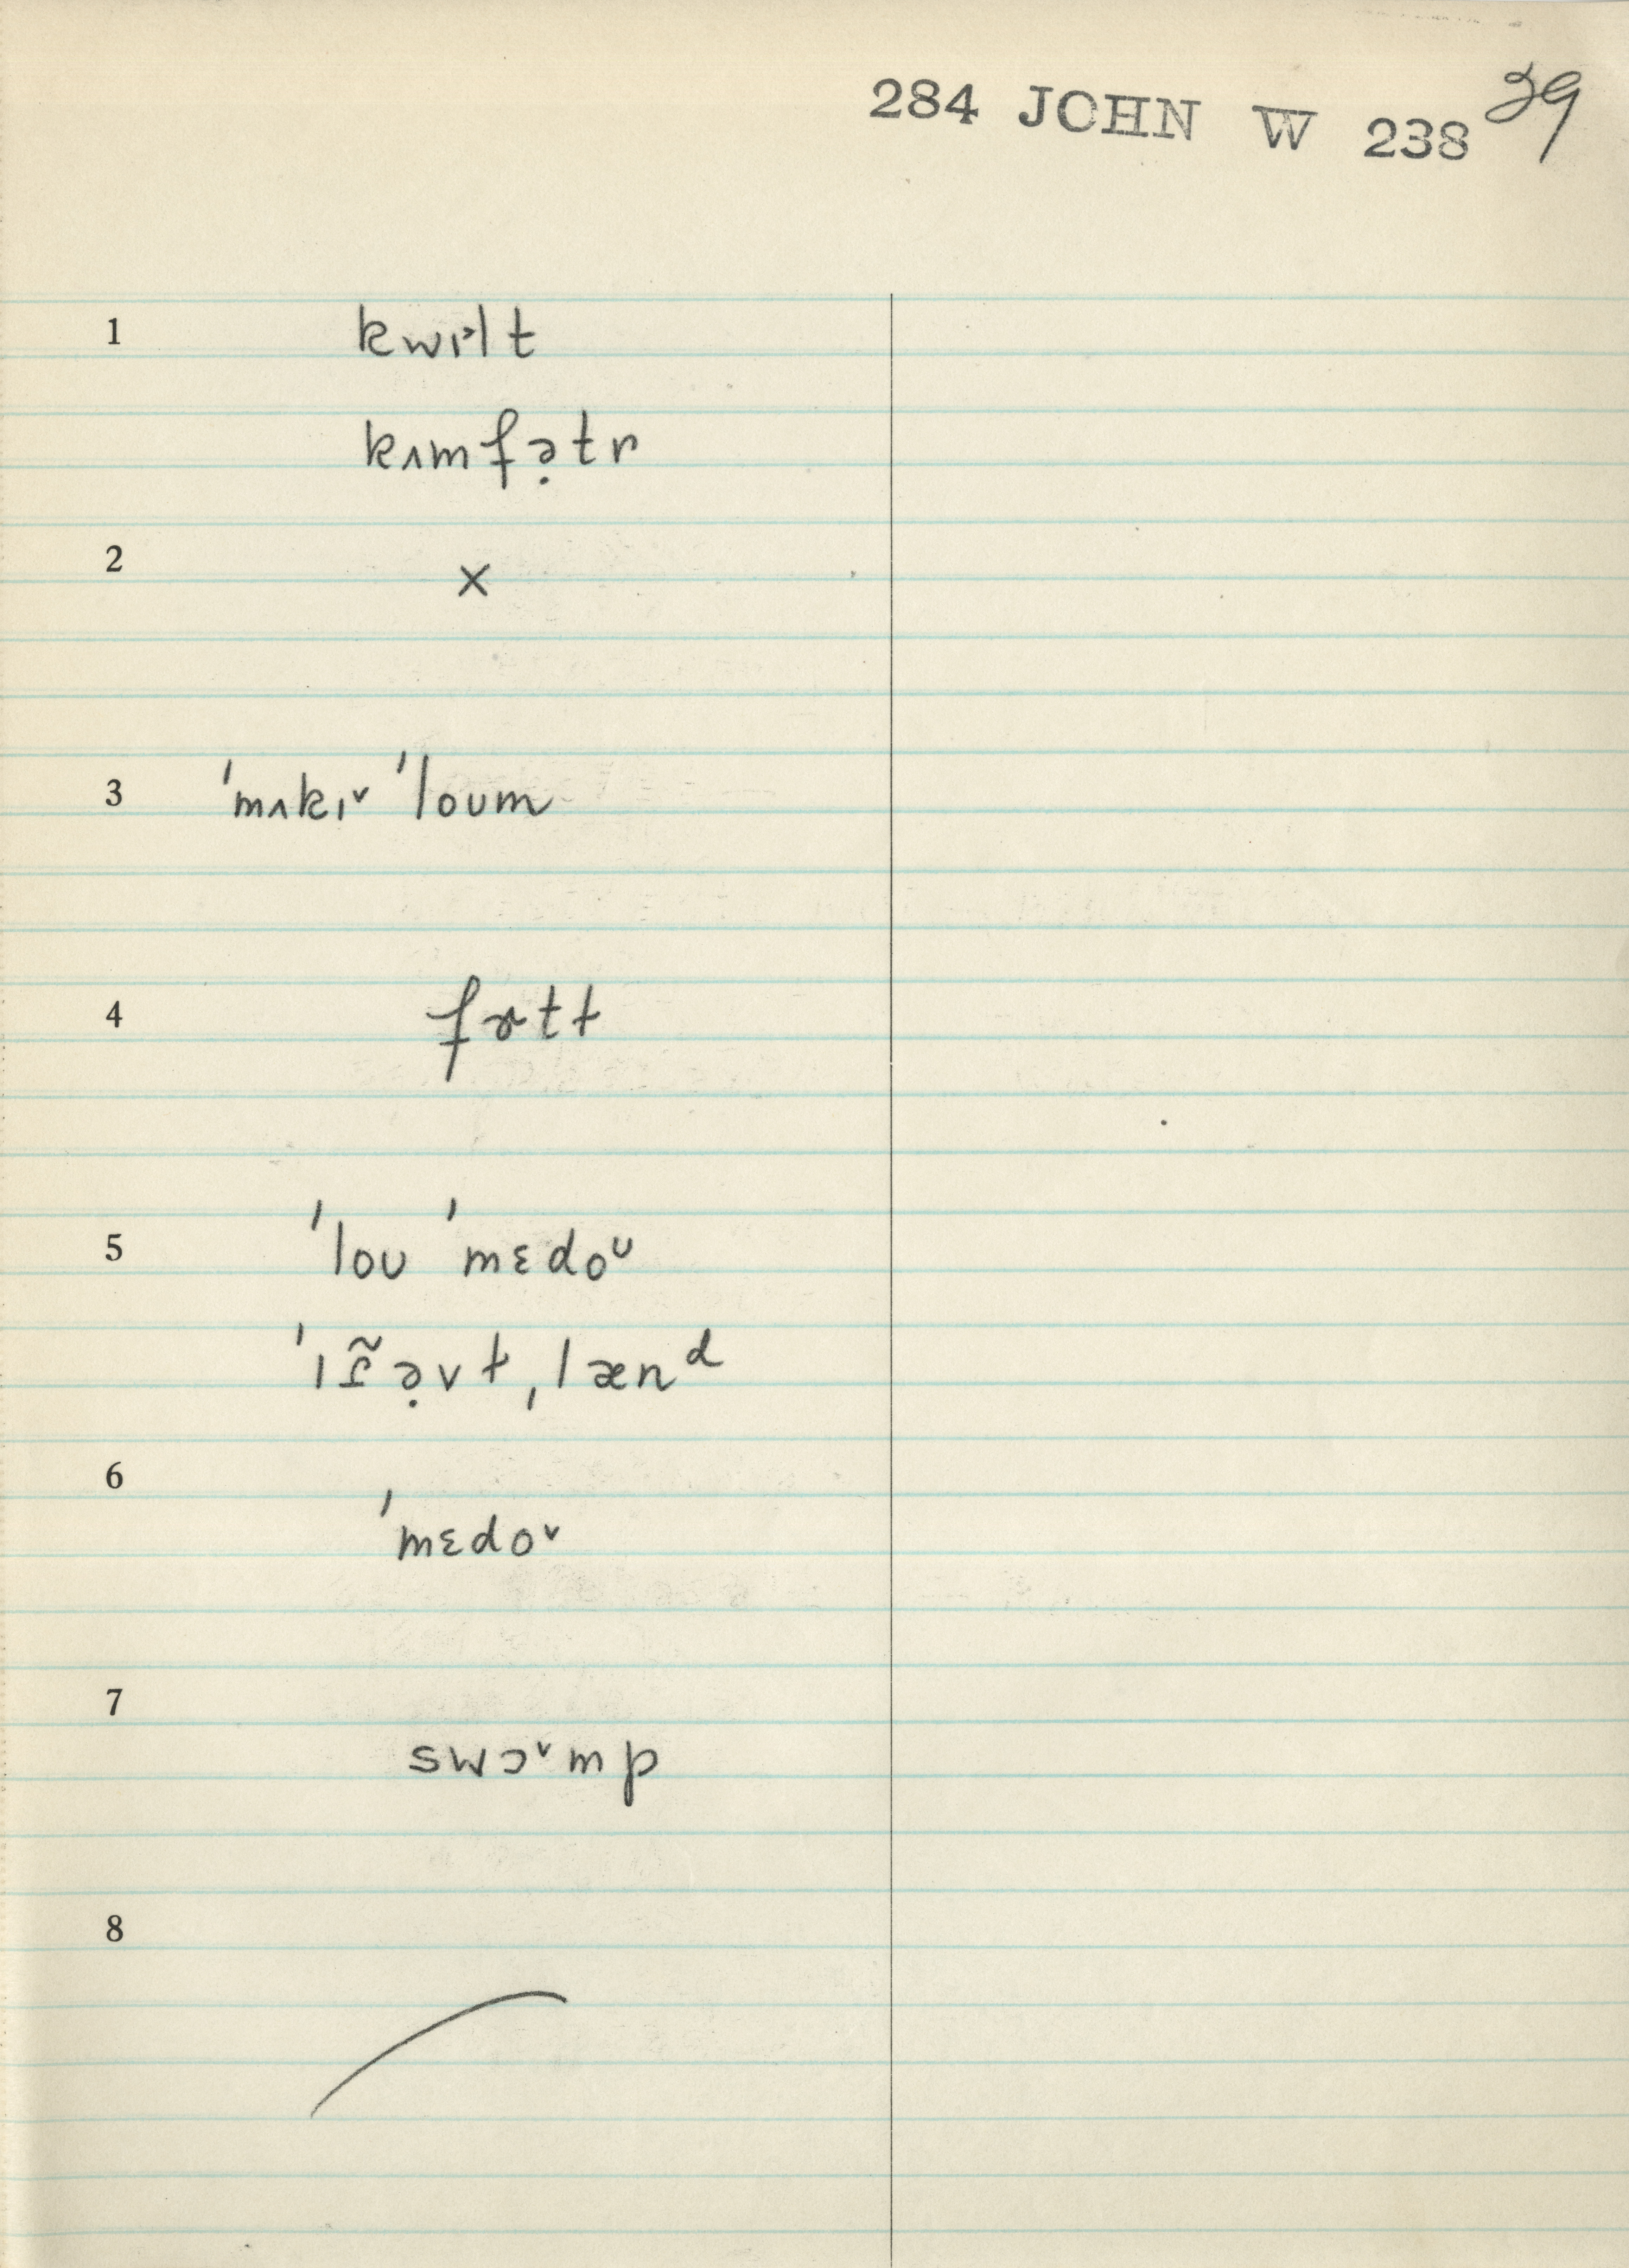 284 JOHN W 238 39
1 kwɪ˃lt
kʌmfə̣tr
2 ×
3 ˈmʌkɪ˅ ˈloʊm
4
5 ˈloʊ ˈmɛdoᶷ
ˌlænᵈ
6 ˈmɛdo˅
7 swɔ˅mp
8